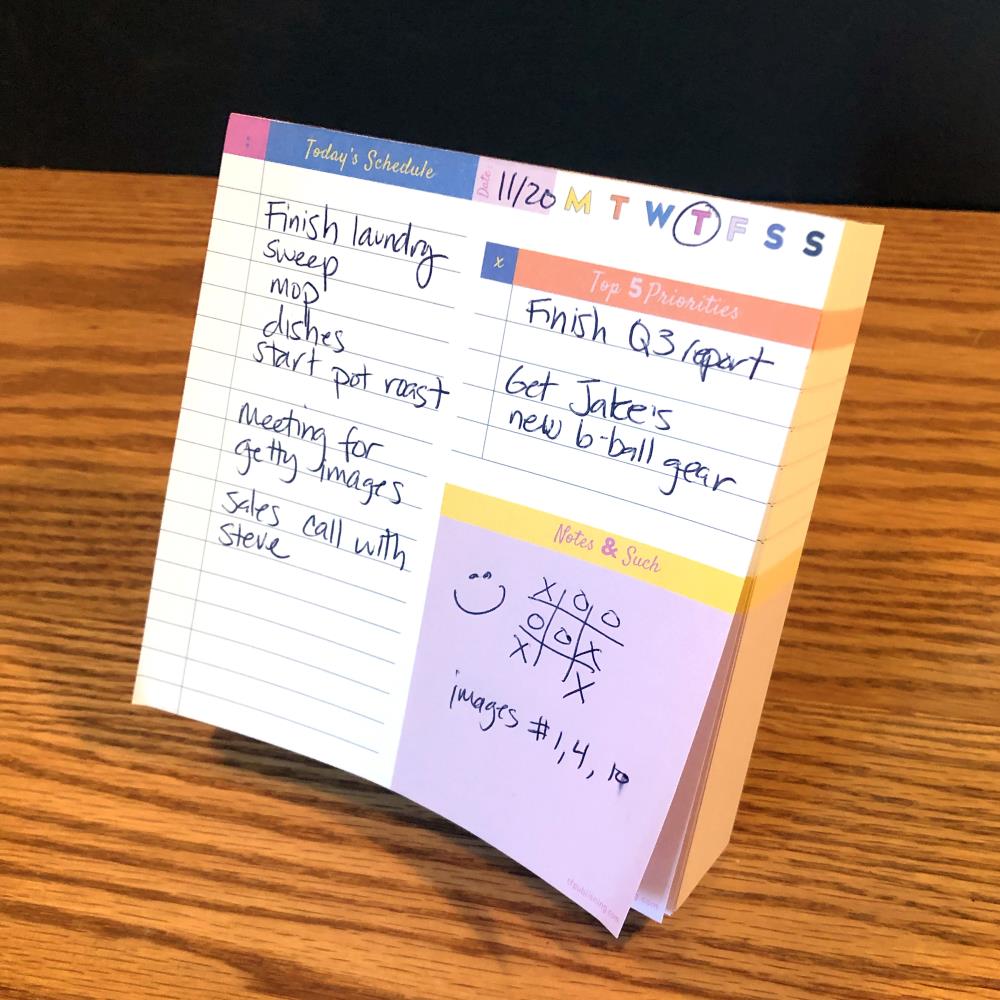 :
Today's Schedule
Finish laundry
sweep
mop
dishes
start pot roast
Meeting for
getty images
Sales call with
Steve
Date:
11/20
M T W T F S S
x
Top 5 Priorities
Finish Q3 report
Get Jake's
new b-ball gear
Notes & Such
X O O
O O X
X X
images #1, 4, 10
tfpublishing.com